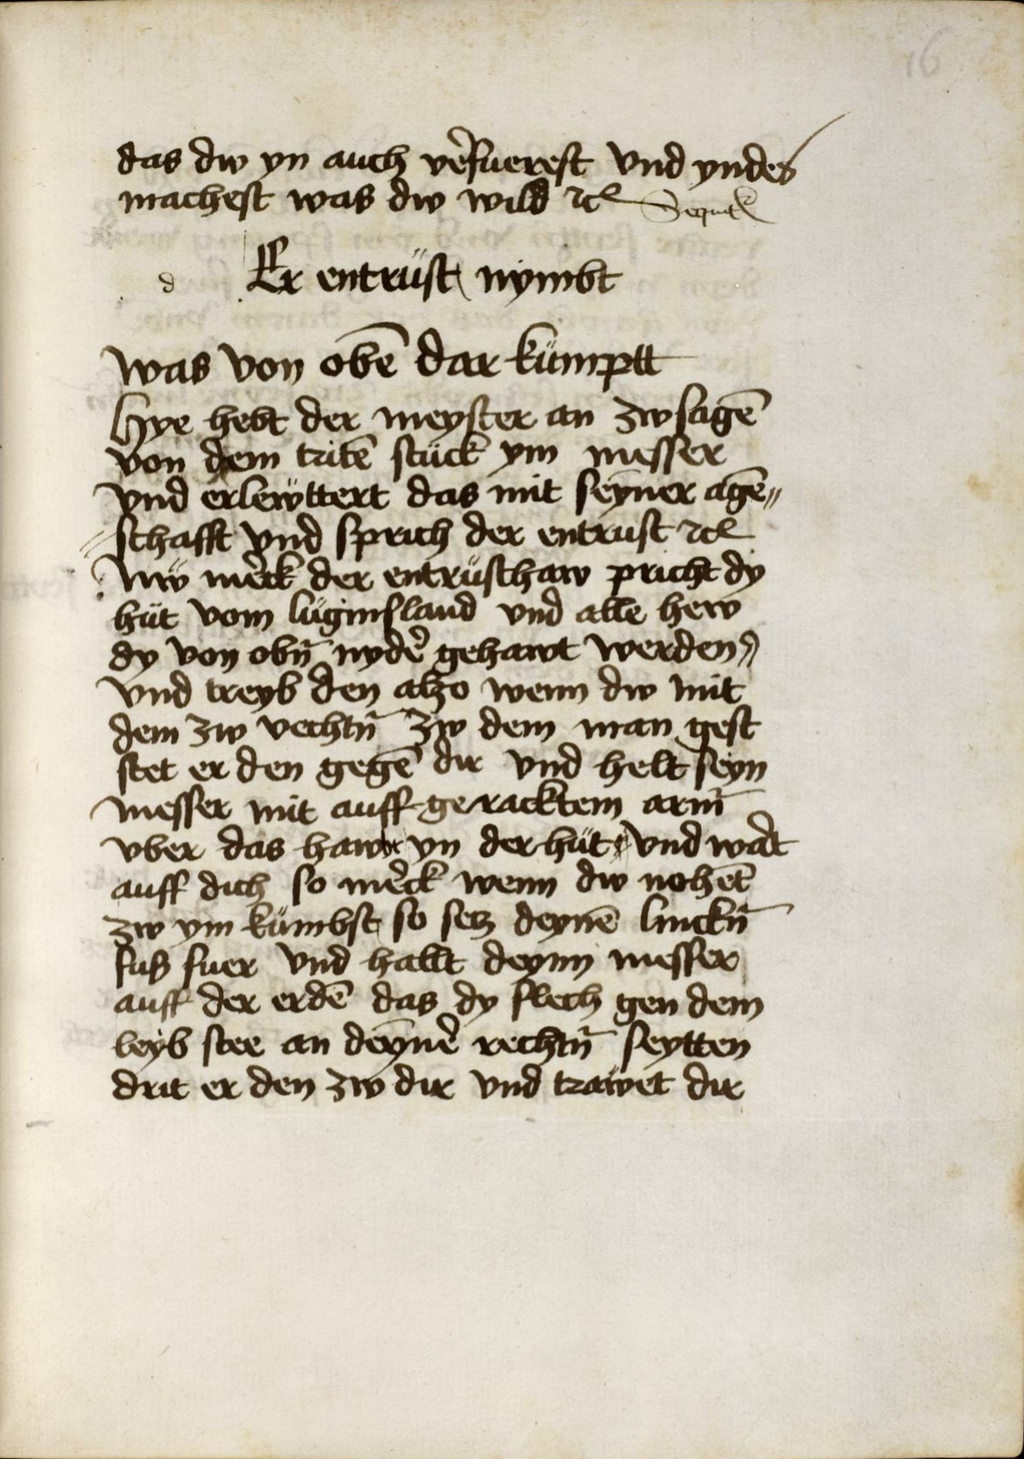 16
das dw yn auch v̉erfuerest Vnd yndes
machest was dw wild ⁊c̃ Sequit̃
d Er entrüst nymbt
was von obē dar kümptt
Hye hebt der meyster an zw sagē
von dem tritē stück ym messer
vnd erlewttert das mit seyner agē〃
〃schafft vnd sprich der entrüst ⁊c̃
Nw mẻrck der entrüsthaw pricht dy
hüt vom lüginsland vnd alle hew
dy von obñ nydẻ gehawt werden
vnd treyb den alzo wenn dw mit
dem zw vechtñ zw dem man gest
stet er den gegē dir vnd helt seyn
messer mit auff geracktem arm̃
vber das hawpt yn der hüt Vnd wart
auff dich so mẻrck wenn dw nohēt
zw ym kümbst so setz deynē linckñ
fuß fuer Vnd hallt deynn messer
auff der erdē das dy flech gen dem
leyb stee an deynẻ rechtñ seytten
drit er den zw dir vnd trawet dir